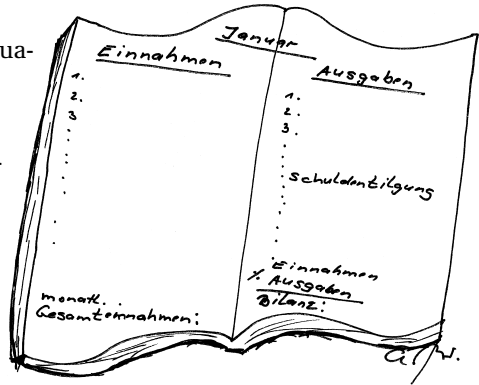 ua-
Januar
Einnahmen
1.
2.
3
monatl.
Gesamteinnahmen:
Ausgaben
1.
2.
3.
Schuldentilgung
Einnahmen
% Ausgaben
Bilanz: